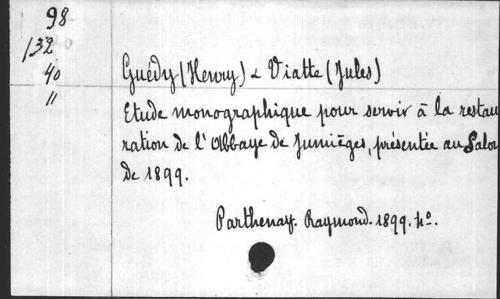 98
132
40
11
Guédy (Henry) & Viatte (Jules)
Etude monographique pour servir à la restau
ration de l'Abbaye de Jumièges, présentée au Salon
de 1899.
Parthenay. Raymond. 1899. 4º.